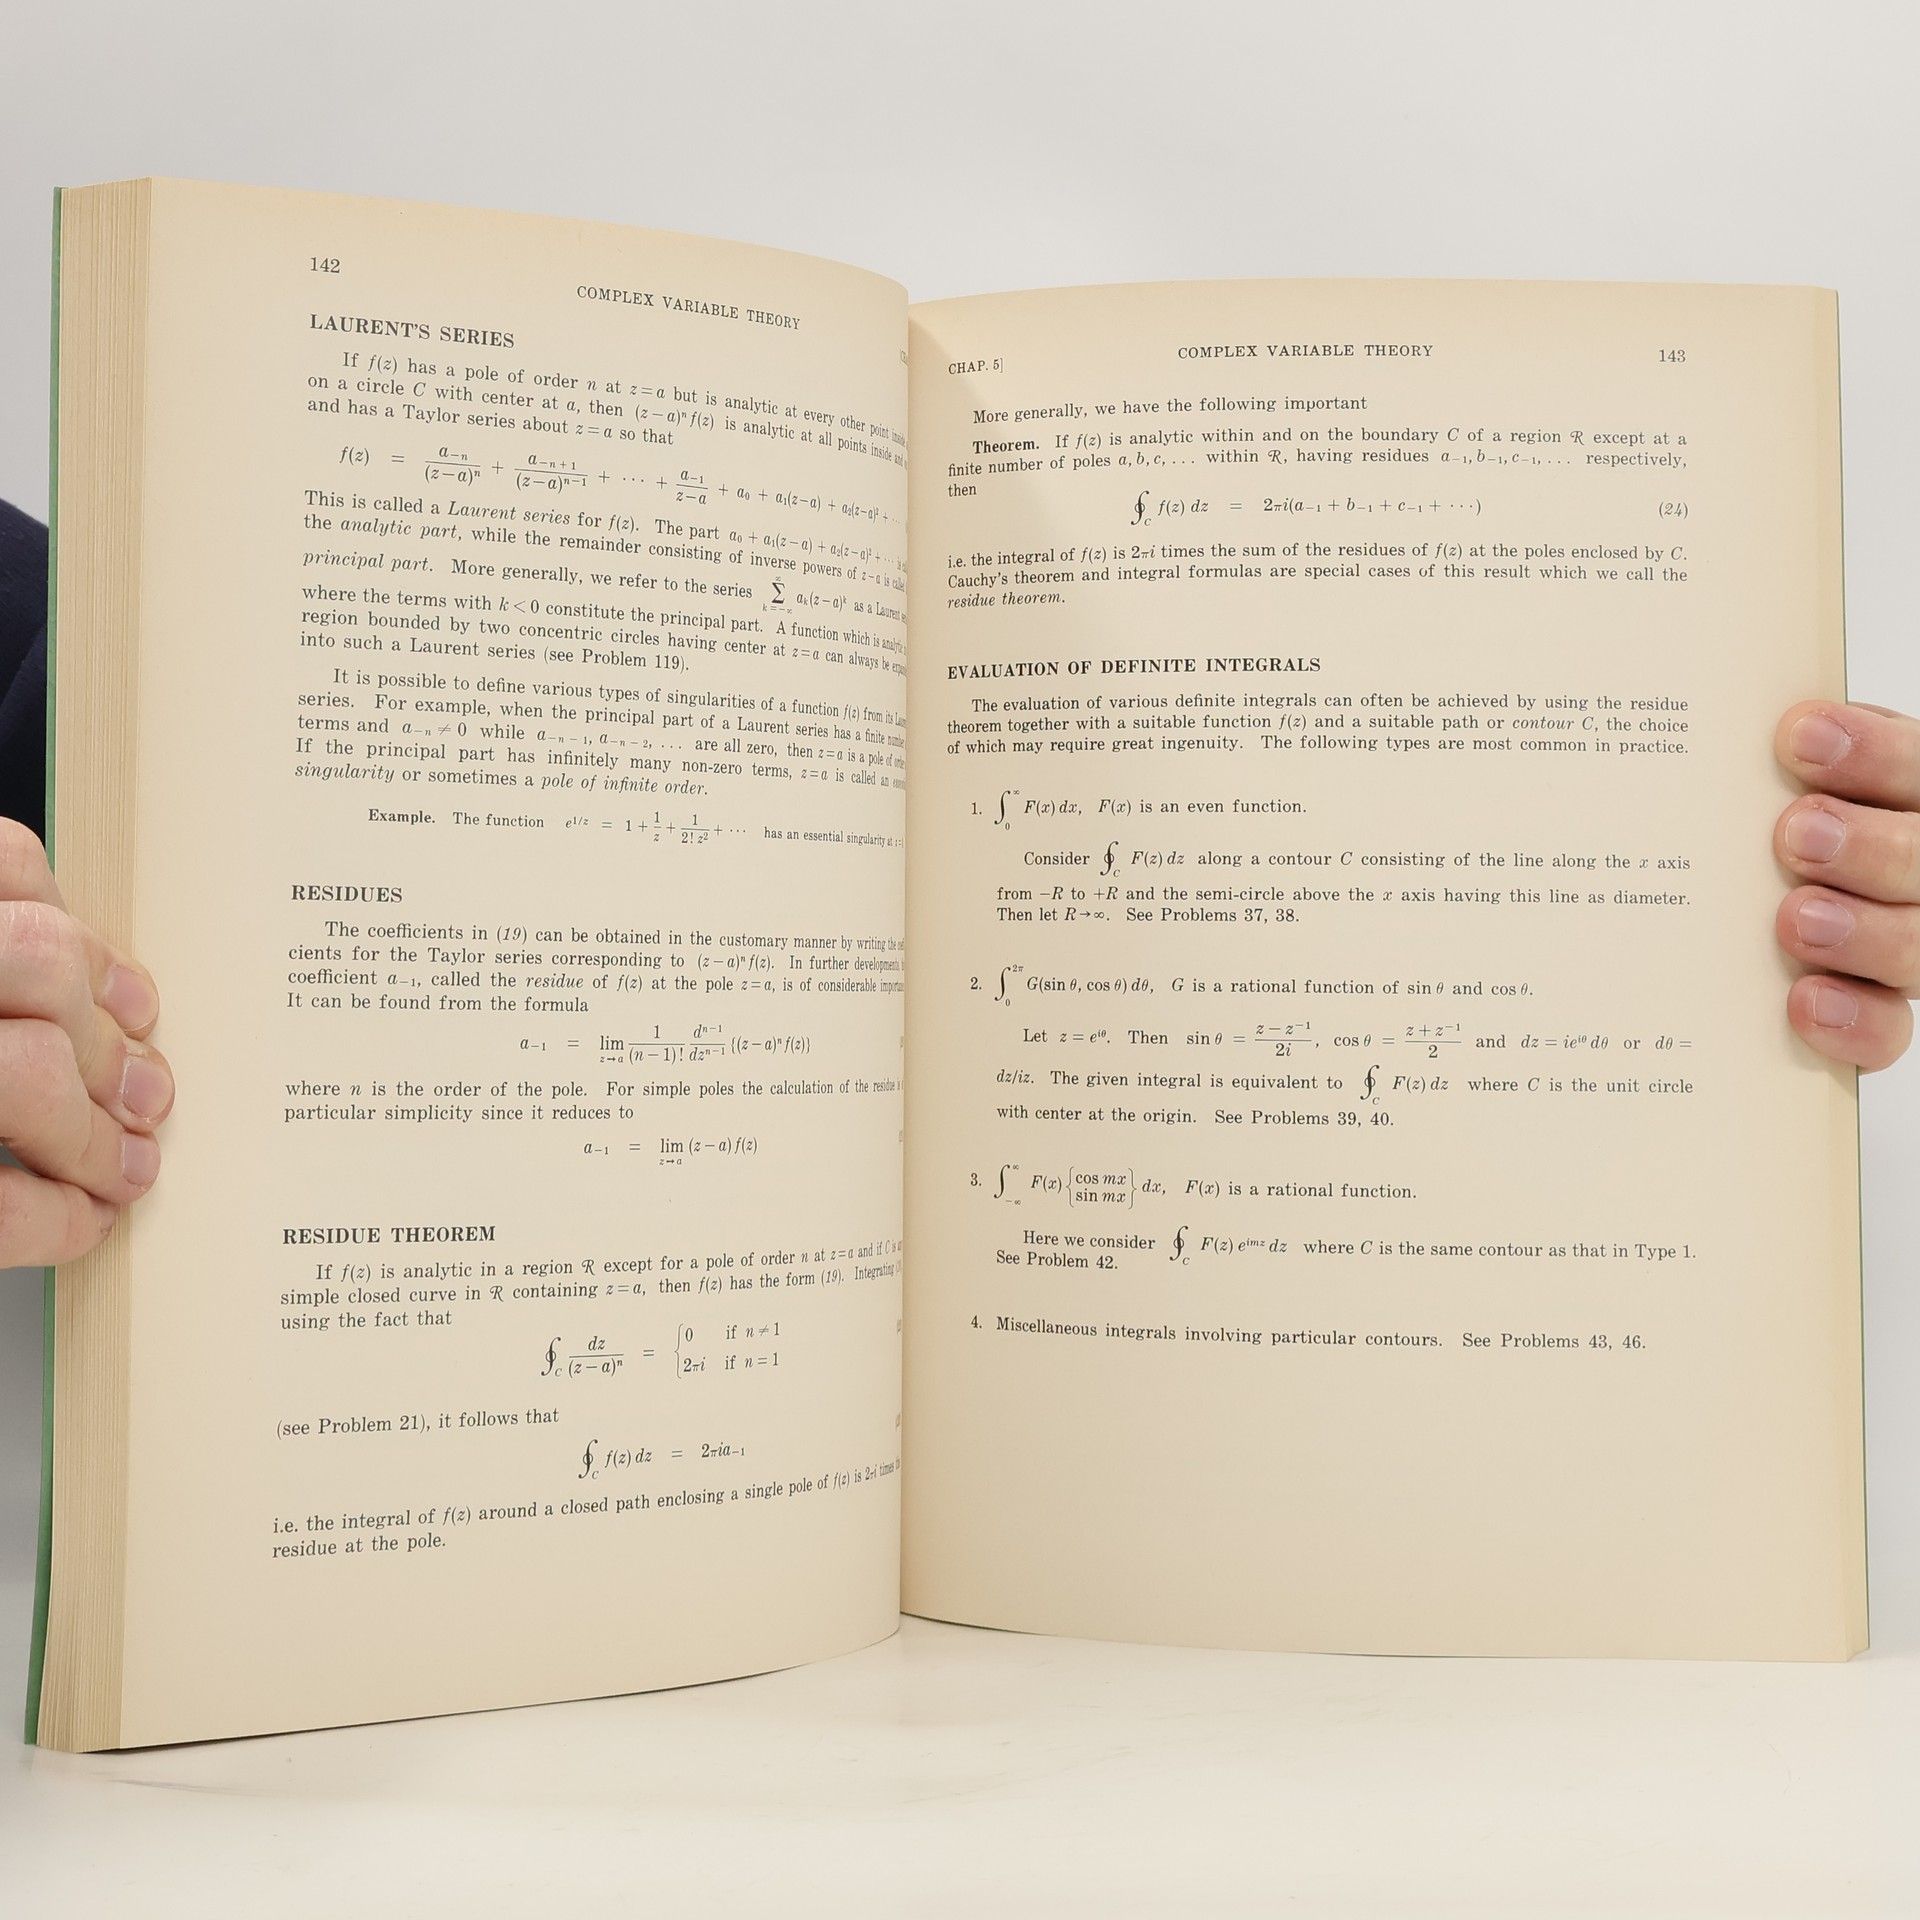 142
COMPLEX VARIABLE THEORY
LAURENT'S SERIES
If f(z) has a pole of order n at z=a but is analytic at every other point inside
on a circle C with center at a, then (z−a)ⁿ f(z) is analytic at all points inside and
and has a Taylor series about z=a so that
f(z) = a₋ₙ/(z−a)ⁿ + a₋ₙ₊₁/(z−a)ⁿ⁻¹ + ··· + a₋₁/(z−a) + a₀ + a₁(z−a) + a₂(z−a)² + ···
This is called a Laurent series for f(z). The part a₀ + a₁(z−a) + a₂(z−a)² + ··· is
the analytic part, while the remainder consisting of inverse powers of z−a is called
principal part. More generally, we refer to the series ∑_{k=−∞}^{∞} aₖ(z−a)ᵏ as a Laurent
where the terms with k<0 constitute the principal part. A function which is analytic
region bounded by two concentric circles having center at z=a can always be
into such a Laurent series (see Problem 119).
It is possible to define various types of singularities of a function f(z) from its
series. For example, when the principal part of a Laurent series has a finite
terms and a₋ₙ ≠ 0 while a₋ₙ₋₁, a₋ₙ₋₂, ... are all zero, then z=a is a pole of
If the principal part has infinitely many non-zero terms, z=a is called an
singularity or sometimes a pole of infinite order.
Example. The function e^{1/z} = 1 + 1/z + 1/(2! z²) + ··· has an essential singularity at
RESIDUES
The coefficients in (19) can be obtained in the customary manner by writing the
cients for the Taylor series corresponding to (z−a)ⁿ f(z). In further developments,
coefficient a₋₁, called the residue of f(z) at the pole z=a, is of considerable
It can be found from the formula
a₋₁ = lim_{z→a} 1/(n−1)! dⁿ⁻¹/dzⁿ⁻¹ {(z−a)ⁿ f(z)}
where n is the order of the pole. For simple poles the calculation of the residue is
particular simplicity since it reduces to
a₋₁ = lim_{z→a} (z−a) f(z)
RESIDUE THEOREM
If f(z) is analytic in a region ℛ except for a pole of order n at z=a and if C is
simple closed curve in ℛ containing z=a, then f(z) has the form (19). Integrating
using the fact that
∮_C dz/(z−a)ⁿ = {0 if n≠1
2πi if n=1
(see Problem 21), it follows that
∮_C f(z) dz = 2πia₋₁
i.e. the integral of f(z) around a closed path enclosing a single pole of f(z) is 2πi times
residue at the pole.
CHAP. 5]
COMPLEX VARIABLE THEORY
143
More generally, we have the following important
Theorem. If f(z) is analytic within and on the boundary C of a region ℛ except at a
finite number of poles a, b, c, ... within ℛ, having residues a₋₁, b₋₁, c₋₁, ... respectively,
then
∮_C f(z) dz = 2πi(a₋₁ + b₋₁ + c₋₁ + ···) (24)
i.e. the integral of f(z) is 2πi times the sum of the residues of f(z) at the poles enclosed by C.
Cauchy's theorem and integral formulas are special cases of this result which we call the
residue theorem.
EVALUATION OF DEFINITE INTEGRALS
The evaluation of various definite integrals can often be achieved by using the residue
theorem together with a suitable function f(z) and a suitable path or contour C, the choice
of which may require great ingenuity. The following types are most common in practice.
1. ∫₀^∞ F(x) dx, F(x) is an even function.
Consider ∮_C F(z) dz along a contour C consisting of the line along the x axis
from −R to +R and the semi-circle above the x axis having this line as diameter.
Then let R→∞. See Problems 37, 38.
2. ∫₀^{2π} G(sin θ, cos θ) dθ, G is a rational function of sin θ and cos θ.
Let z = e^{iθ}. Then sin θ = (z − z⁻¹)/2i, cos θ = (z + z⁻¹)/2 and dz = ie^{iθ} dθ or dθ =
dz/iz. The given integral is equivalent to ∮_C F(z) dz where C is the unit circle
with center at the origin. See Problems 39, 40.
3. ∫_{−∞}^{∞} F(x) {cos mx
sin mx} dx, F(x) is a rational function.
Here we consider ∮_C F(z) e^{imz} dz where C is the same contour as that in Type 1.
See Problem 42.
4. Miscellaneous integrals involving particular contours. See Problems 43, 46.